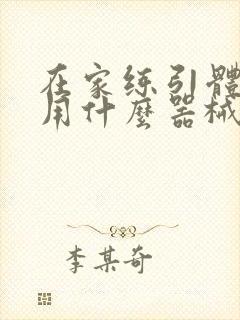 在家练引體
用什麼器械
李某奇